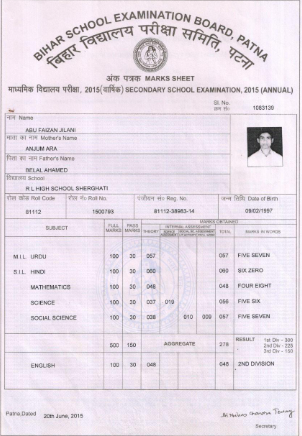 BIHAR SCHOOL EXAMINATION BOARD, PATNA
बिहार विद्यालय परीक्षा समिति, पटना
अंक पत्रक MARKS SHEET
माध्यमिक विद्यालय परीक्षा, 2015(वार्षिक) SECONDARY SCHOOL EXAMINATION, 2015 (ANNUAL)
Sl. No.
1083139
नाम Name
ABU FAIZAN JILANI
माता का नाम Mother's Name
ANJUM ARA
पिता का नाम Father's Name
BELAL AHAMED
विद्यालय School
R L HIGH SCHOOL SHERGHATI
रौल कोड Roll Code रौल नं० Roll No. पंजीयन सं० Reg. No. जन्म तिथि Date of Birth
81112 1500793 81112-58963-14 09/02/1997
SUBJECT FULL MARKS PASS MARKS THEORY INTERNAL ASSESSMENT TOTAL MARKS IN WORDS
MARKS OBTAINED
M.I.L. URDU 100 30 057 057 FIVE SEVEN
S.I.L. HINDI 100 30 060 060 SIX ZERO
MATHEMATICS 100 30 048 048 FOUR EIGHT
SCIENCE 100 30 037 019 056 FIVE SIX
SOCIAL SCIENCE 100 30 038 010 009 057 FIVE SEVEN
500 150 AGGREGATE 278 RESULT 1st Div - 300
2nd Div - 225
3rd Div - 150
ENGLISH 100 30 048 048 2ND DIVISION
Patna,Dated 20th June, 2015
Secretary